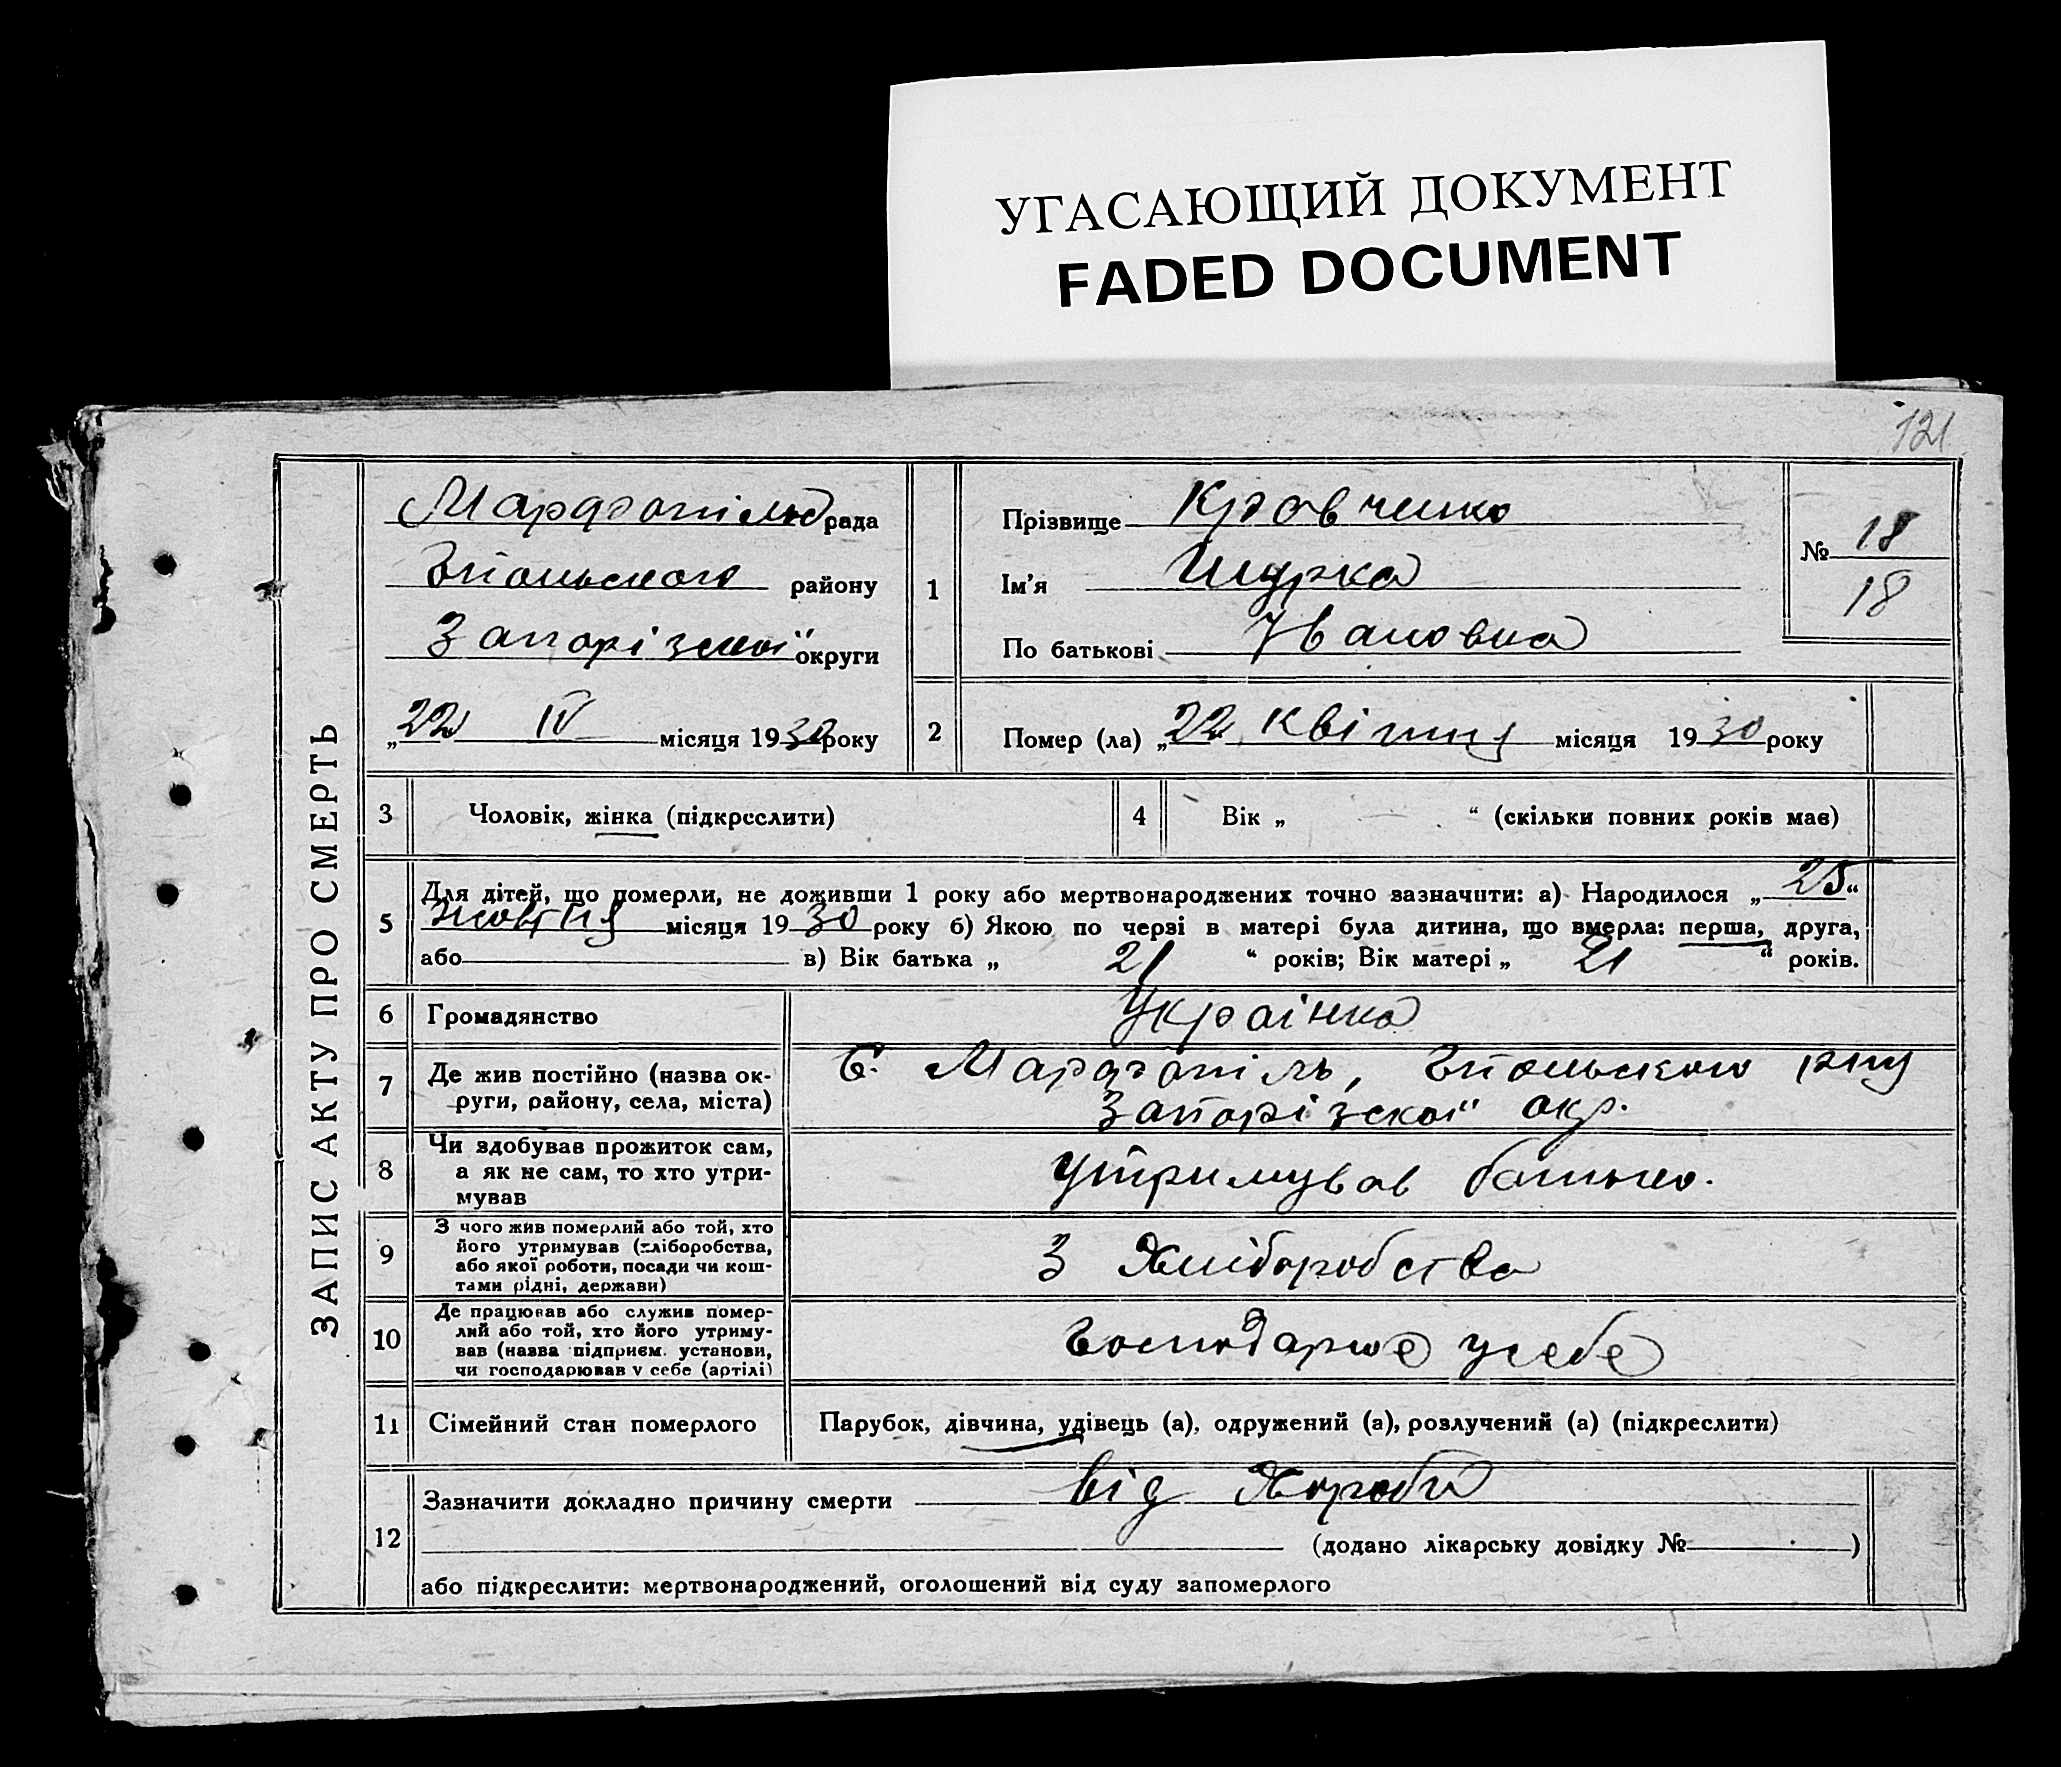 УГАСАЮЩИЙ ДОКУМЕНТ
FADED DOCUMENT
121
ЗАПИС АКТУ ПРО СМЕРТЬ
рада
району
Запорізскої округи
„22 IV місяця 1930 року
1
Прізвище Кравченко
Ім’я Шурка
По батькові Івановна
№ 18
18
2
Помер (ла) „22 квітня місяця 1930 року
3 Чоловік, жінка (підкреслити)
4 Вік „ “ (скільки повних років мав)
5
Для дітей, що померли, не доживши 1 року або мертвонароджених точно зазначити: а) Народилося „25“
жовтня місяця 1930 року б) Якою по черзі в матері була дитина, що вмерла: перша, друга,
або в) Вік батька „ 21 “ років; Вік матері „ 21 “ років.
6 Громадянство Українка
7 Де жив постійно (назва ок-
руги, району, села, міста)
С.
Запорізскої окр.
8
Чи здобував прожиток сам,
а як не сам, то хто утри-
мував
утримував батько.
9
З чого жив померлий або той, хто
його утримував (хліборобства,
або якої роботи, посади чи кош-
тами рідні, держави)
З хліборобства
10
Де працював або служив помер-
лий або той, хто його утриму-
вав (назва підприєм. установи,
чи господарював у себе (артілі)
Господарює усебе
11 Сімейний стан померлого Парубок, дівчина, удівець (а), одружений (а), розлучений (а) (підкреслити)
12
Зазначити докладно причину смерти від хороби
(додано лікарську довідку № )
або підкреслити: мертвонароджений, оголошений від суду запомерлого